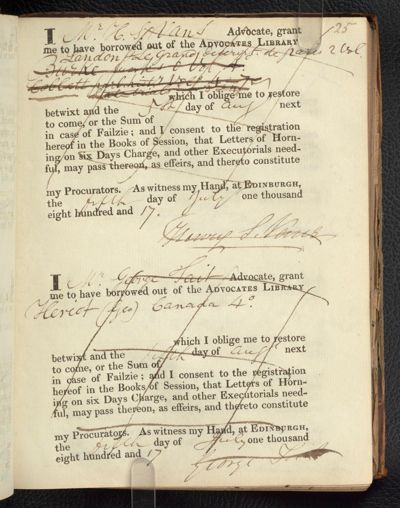 25
I Mr H. St Vans Advocate, grant
me to have borrowed out of the ADVOCATES LIBRARY
Landon Le Grand descript. de paris 2 vol
Burke
which I oblige me to restore
betwixt and the 5th day of aug next
to come, or the Sum of
in case of Failzie; and I consent to the registration
hereof in the Books of Session, that Letters of Horn-
ing on six Days Charge, and other Executorials need-
ful, may pass thereon, as effeirs, and thereto constitute
my Procurators. As witness my Hand, at EDINBURGH,
the fifth day of July one thousand
eight hundred and 17.
I Mr George Tait Advocate, grant
me to have borrowed out of the ADVOCATES LIBRARY
Heriot (Geo) Canada 4o.
which I oblige me to restore
betwixt and the fifth day of aug next
to come, or the Sum of
in case of Failzie; and I consent to the registration
hereof in the Books of Session, that Letters of Horn-
ing on six Days Charge, and other Executorials need-
ful, may pass thereon, as effeirs, and thereto constitute
my Procurators. As witness my Hand, at EDINBURGH,
the fifth day of July one thousand
eight hundred and 17
George Tait